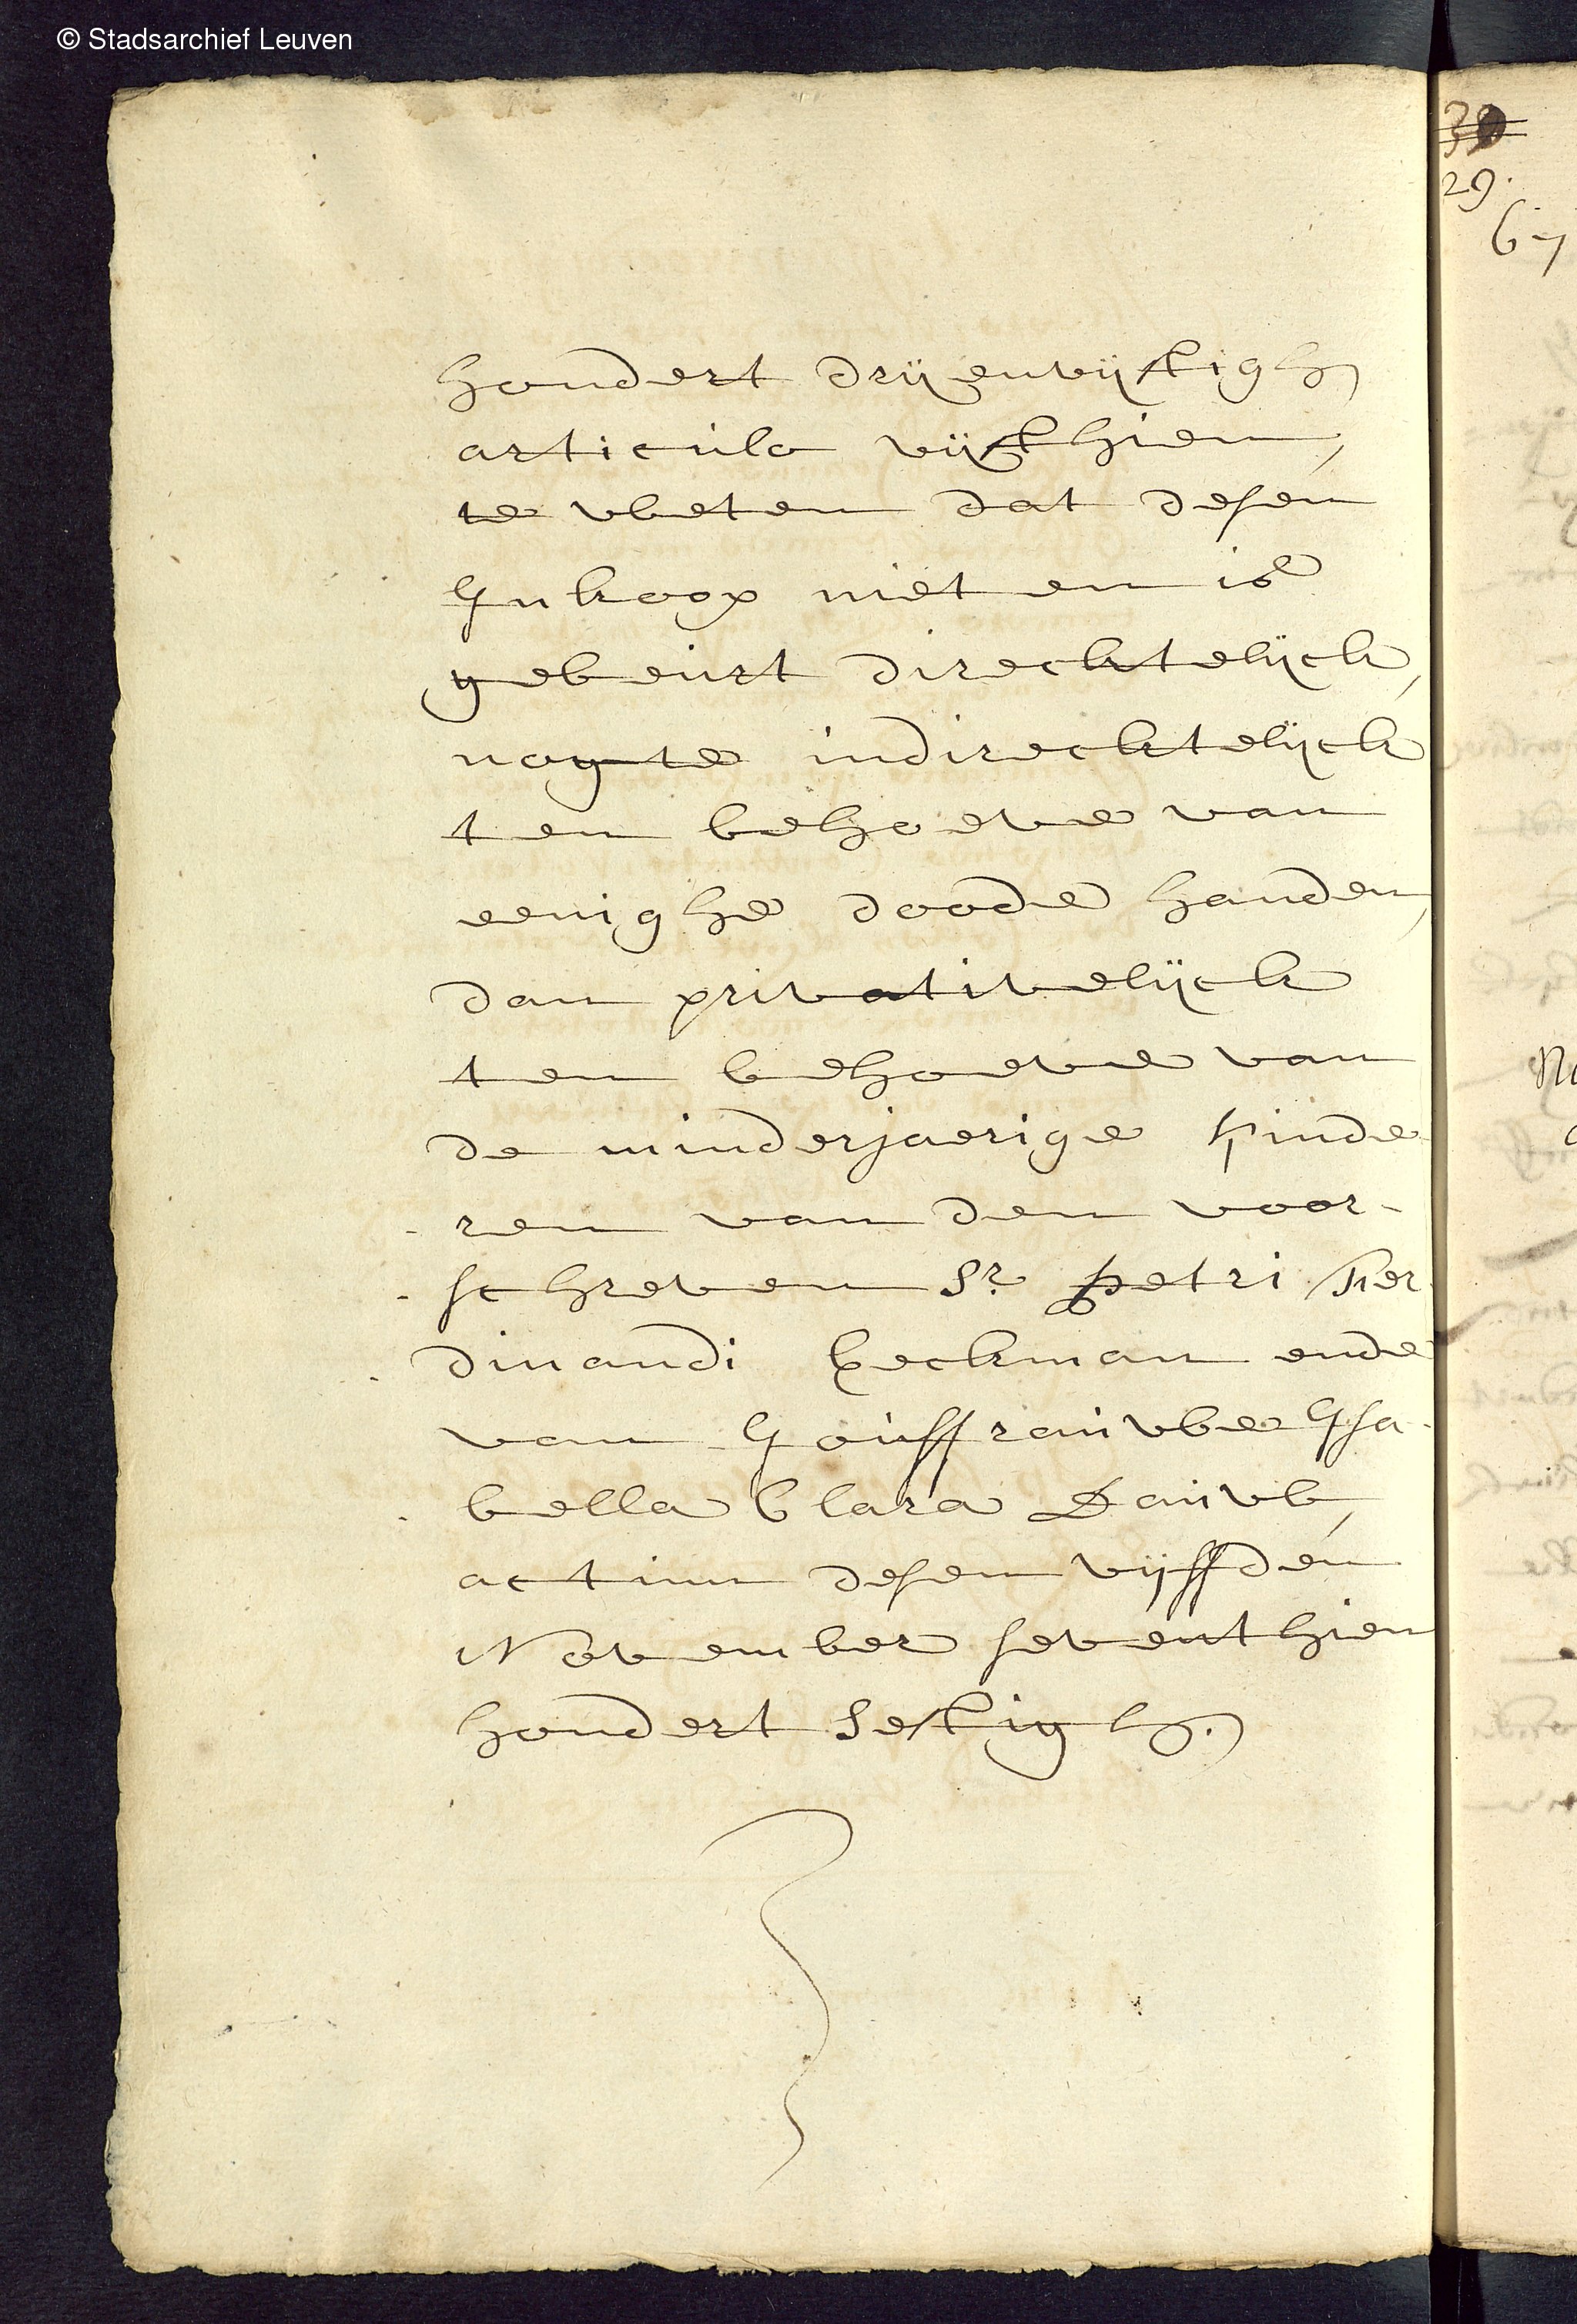 © Stadsarchief Leuven
39
29.
67
hondert drijenvijftigh
articulo vijfthien,
te weten dat desen
Inkoop niet en is
gebeurt direcktelijck,
nogte indirecktelijck
ten behoeve van
eenighe doode handen,
dan privativelijck
ten behoeve van
de minderjaerige kinde
- ren van den voor-
- schreven Sr. petri Fer
dinandi Beckman ende
van Jouffrauwe Isa-
bella Clara Dauw,
actum desen vijffden
November seventhien
hondert sestigh.